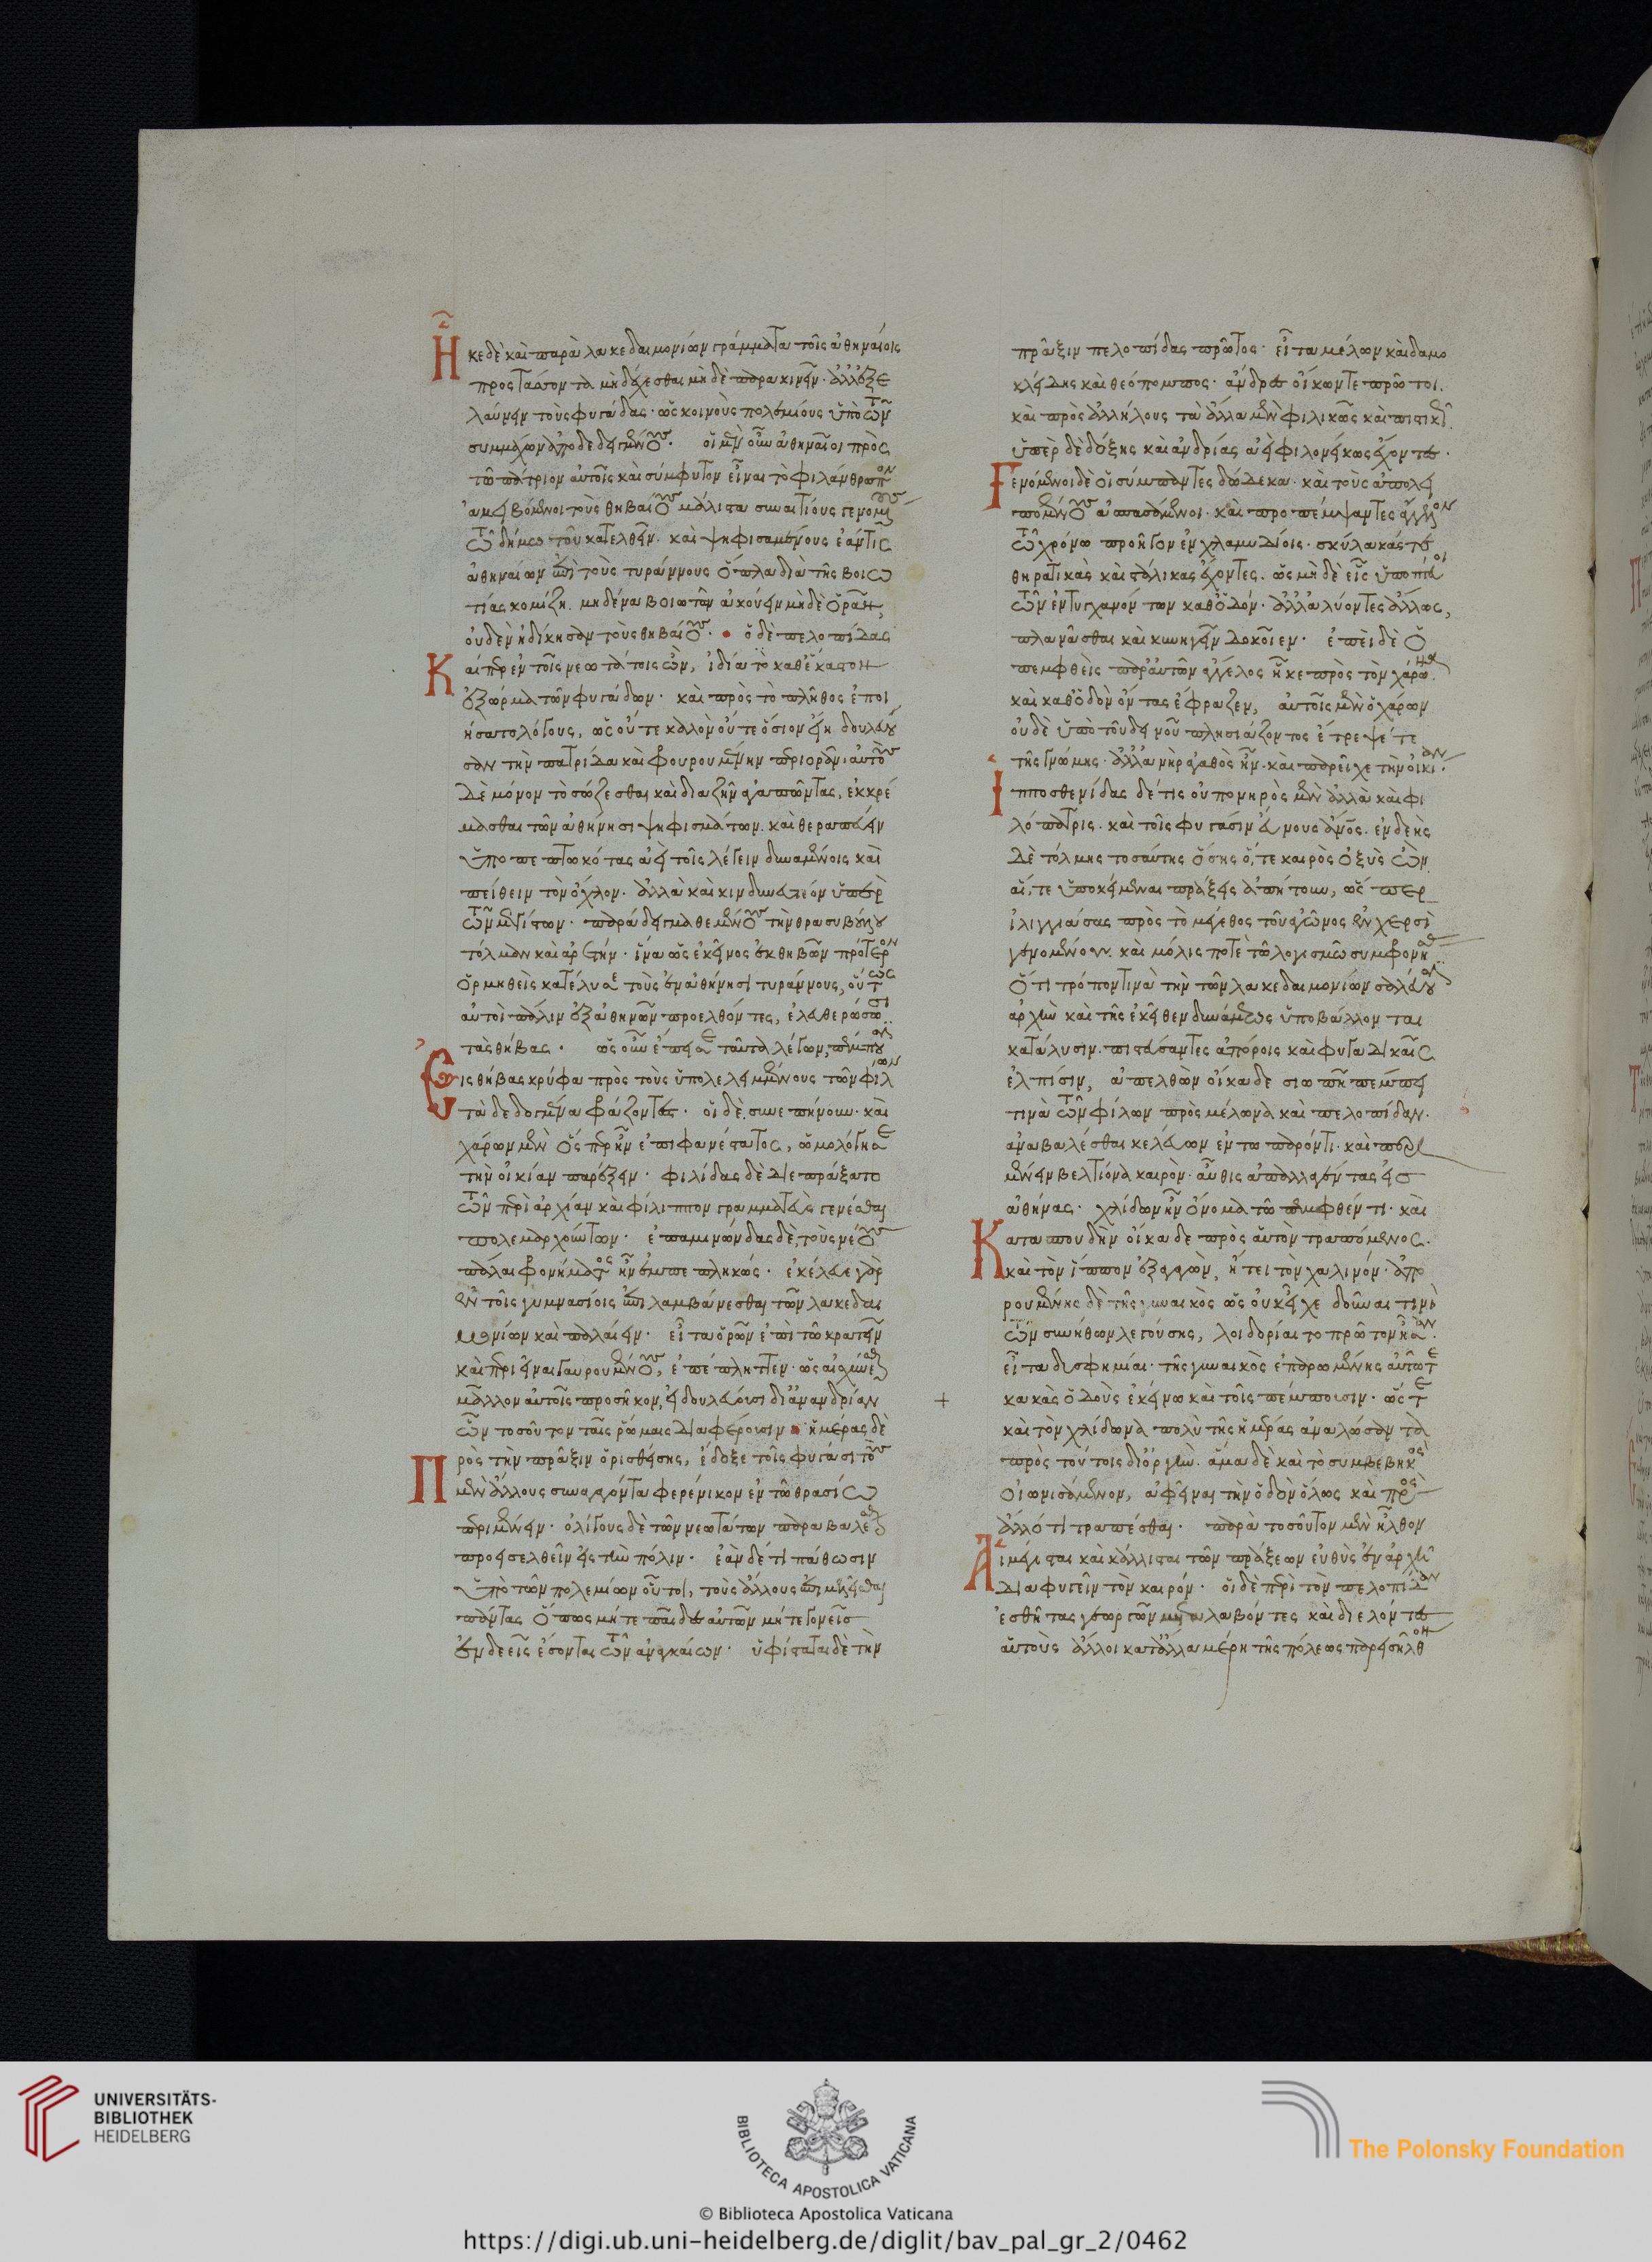 Ἧκε δὲ καὶ παρὰ λακεδαιμονίων γράμματα τοῖς ἀθηναίοις
προστάσσοντα μὴ δέχεσθαι μὴ δὲ παρακινεῖν· ἀλλ' ἐξε
λαύνειν τοὺς φυγάδας· ὡς κοινοὺς πολεμίους ὑπὸ τῶν
συμμάχων ἀποδεδειγμένους. οἱ μὲν οὖν ἀθηναῖοι πρὸς
τῶ πάτριον αὐτοῖς καὶ σύμφυτον εἶναι τὸ φιλάνθρωπον
ἀμειβόμενοι τοὺς θηβαίους μάλιστα συναιτίους γενομένους
τῶ δήμω τοῦ κατελθεῖν. καὶ ψηφισαμένους ἐάν τις
ἀθηναίων ἐπὶ τοὺς τυράννους ὅπλα διὰ τῆς βοιω
τίας κομίζη. μηδένα βοιωτῶν ἀκούειν μὴ δὲ ὁρᾶν,
οὐδὲν ἠδίκησαν τοὺς θηβαίους. ὁ δὲ πελοπίδας
Καίπερ ἐν τοῖς νεωτάτοις ὢν, ἰδία τὸ καθ' ἕκαστον
ἐξώρμα τῶν φυγάδων. καὶ πρὸς τὸ πλῆθος ἐποι
ήσατο λόγους, ὡς οὔτε καλὸν οὔτε ὅσιον εἴη δουλεύου
σαν τὴν πατρίδα καὶ φρουρουμένην περιορᾶν· αὐτοὺς
δὲ μόνον τὸ σώζεσθαι καὶ διαζῆν ἀγαπῶντας, ἐκκρέ
μασθαι τῶν ἀθήνησι ψηφισμάτων. καὶ θεραπεύειν
ὑποπεπτωκότας ἀεὶ τοῖς λέγειν δυναμένοις καὶ
πείθειν τὸν ὄχλον. ἀλλὰ καὶ κινδυνευτέον ὑπὲρ
τῶν μεγίστων. παράδειγμα θεμένους τὴν θρασυβούλου
τόλμαν καὶ ἀρετήν. ἵνα ὡς ἐκεῖνος ἐκ θηβῶν πρότερον
ὁρμηθεὶς κατέλυσε τοὺς ἐν ἀθήνησι τυράννους, οὕτως
αὐτοὶ πάλιν ἐξ ἀθηνῶν προελθόντες, ἐλευθερώσωσι
τὰς θήβας. ὡς οὖν ἔπεισε ταῦτα λέγων, πέμπουσιν
Εἰς θήβας κρύφα πρὸς τοὺς ὑπολελειμμένους τῶν φίλων
τὰ δεδογμένα φράζοντες. οἱ δὲ συνεπήνουν. καὶ
χάρων μὲν ὅσπερ ἦν ἐπιφανέστατος, ὡμολόγησε
τὴν οἰκίαν παρέξειν. φιλίδας δὲ διεπράξατο
τῶν περὶ ἀρχίαν καὶ φίλιππον γραμματεὺς γενέσθαι
πολεμαρχούντων. ἐπαμινώνδας δὲ, τοὺς νέους
πάλαι φρονήματος ἦν ἐμπεπληκώς. ἐκέλευε γὰρ
ἐν τοῖς γυμνασίοις ἐπιλαμβάνεσθαι τῶν λακεδαι
μονίων καὶ παλαίειν. εἶτα ὁρῶν ἐπὶ τῶ κρατεῖν
καὶ περιεῖναι γαυρουμένους, ἐπέπληττεν. ὡς αἰσχύνεσθαι
μᾶλλον αὐτοῖς προσῆκον, εἰ δουλεύουσι δι' ἀνανδρίαν
ὧν τοσοῦτον ταῖς ῥώμαις διαφέρουσιν ἡμέρας δὲ
Πρὸς τὴν πρᾶξιν ὁρισθείσης, ἔδοξε τοῖς φυγάσι τοὺς
μὲν ἄλλους συναγαγόντα φερένικον ἐν τῶ θρασίω
περιμένειν. ὀλίγους δὲ τῶν νεωτάτων παραβαλέσθαι
προεισελθεῖν εἰς τὴν πόλιν. ἐὰν δέ τι πάθωσιν
ὑπὸ τῶν πολεμίων οὗτοι, τοὺς ἄλλους ἐπιμελεῖσθαι
πάντας ὅπως μήτε παῖδες αὐτῶν μήτε γονεῖς
ἐνδεεῖς ἔσονται τῶν ἀναγκαίων. ὑφίσταται δὲ τὴν
πρᾶξιν πελοπίδας πρῶτος. εἶτα μέλων καὶ δαμο
κλείδης καὶ θεόπομπος. ἄνδρες οἴκων τε πρώτων.
καὶ πρὸς ἀλλήλους τὰ ἄλλα μὲν φιλικῶς καὶ πιστικῶς
ὑπὲρ δὲ δόξης καὶ ἀνδρίας ἀεὶ φιλονείκως ἔχοντες.
Γενόμενοι δὲ οἱ σύμπαντες δώδεκα. καὶ τοὺς ἀπολει
πομένους ἀσπασάμενοι. καὶ προπέμψαντες ἄγγελον
τῶ χάρωνι προῆγον ἐν χλαμυδίοις. σκύλακάς τε
θηρατικὰς καὶ στάλικας ἔχοντες. ὡς μὴ δὲ εἷς ὑποπτεύοι
τῶν ἐντυγχανόντων καθ' ὁδόν. ἀλλ' ἀλύοντες ἄλλως,
πλανᾶσθαι καὶ κυνηγεῖν δοκοῖεν. ἐπεὶ δὲ ὁ
πεμφθεὶς παρ' αὐτῶν ἄγγελος ἧκε πρὸς τὸν χάρωνα
καὶ καθ' ὁδὸν ὄντας ἔφραζεν, αὐτοῖς μὲν ὁ χάρων
οὐδὲ ὑπὸ τοῦ δεινοῦ πλησιάζοντος ἔτρεψέ τι
τῆς γνώμης. ἀλλ' ἀνὴρ ἀγαθὸς ἦν. καὶ παρεῖχε τὴν οἰκίαν.
Ἱπποσθενίδας δέ τις οὐ πονηρὸς μὲν ἀλλὰ καὶ φι
λόπατρις. καὶ τοῖς φυγάσιν εὔνους ἄνθρωπος. ἐνδεὴς
δὲ τόλμης τοσαύτης ὅσης ὅ, τε καιρὸς ὀξὺς ὢν
αἵ, τε ὑποκείμεναι πράξεις ἀπήτουν, ὥσπερ
ἰλιγγιάσας πρὸς τὸ μέγεθος τοῦ ἀγῶνος ἐν χερσὶ
γενομένου. καὶ μόλις ποτὲ τῶ λογισμῶ συμφρονήσας
ὅτι τρόπον τινὰ τὴν τῶν λακεδαιμονίων σαλεύουσιν
ἀρχὴν καὶ τῆς ἐκεῖθεν δυνάμεως ὑποβάλλονται
κατάλυσιν. πιστεύσαντες ἀπόροις καὶ φυγαδικαῖς
ἐλπίσιν, ἀπελθὼν οἴκαδε σιωπῆ πέμπει
τινὰ τῶν φίλων πρὸς μέλωνα καὶ πελοπίδαν.
ἀναβαλέσθαι κελεύων ἐν τῶ παρόντι. καὶ περι
μένειν βελτίονα καιρὸν. αὖθις ἀπαλλαγέντας εἰς
ἀθήνας. χλίδων ἦν ὄνομα τῶ πεμφθέντι. καὶ
Κατὰ σπουδὴν οἴκαδε πρὸς αὑτὸν τραπόμενος.
καὶ τὸν ἵππον ἐξαγαγὼν, ἤτει τὸν χαλινόν. ἀπο
ρουμένης δὲ τῆς γυναικὸς ὡς οὐκ εἶχε δοῦναι τινὶ
τῶν συνήθων λεγούσης, λοιδορίαι τὸ πρῶτον ἦσαν.
εἶτα δυσφημίαι. τῆς γυναικὸς ἐπαρωμένης αὐτῶ τε
κακὰς ὁδοὺς ἐκείνω καὶ τοῖς πέμπουσιν. ὥστε
καὶ τὸν χλίδωνα πολὺ τῆς ἡμέρας ἀναλώσαντα
πρὸς τούτοις δι' ὀργὴν. ἅμα δὲ καὶ τὸ συμβεβηκὸς
οἰωνισάμενον, ἀφεῖναι τὴν ὁδὸν ὅλως καὶ πρὸς
ἄλλό τι τραπέσθαι. παρὰ τοσοῦτον μὲν ἦλθον
Αἱ μέγισται καὶ κάλλισται τῶν πράξεων εὐθὺς ἐν ἀρχῆ
διαφυγεῖν τὸν καιρόν. οἱ δὲ περὶ τὸν πελοπίδαν
ἐσθῆτας γεωργῶν μεταλαβόντες καὶ διελόντες
αὑτοὺς ἄλλοι κατ' ἄλλα μέρη τῆς πόλεως παρεισῆλθον
UNIVERSITÄTS-
BIBLIOTHEK
HEIDELBERG
BIBLIOTECA APOSTOLICA VATICANA
The Polonsky Foundation
© Biblioteca Apostolica Vaticana
https://digi.ub.uni-heidelberg.de/diglit/bav_pal_gr_2/0462